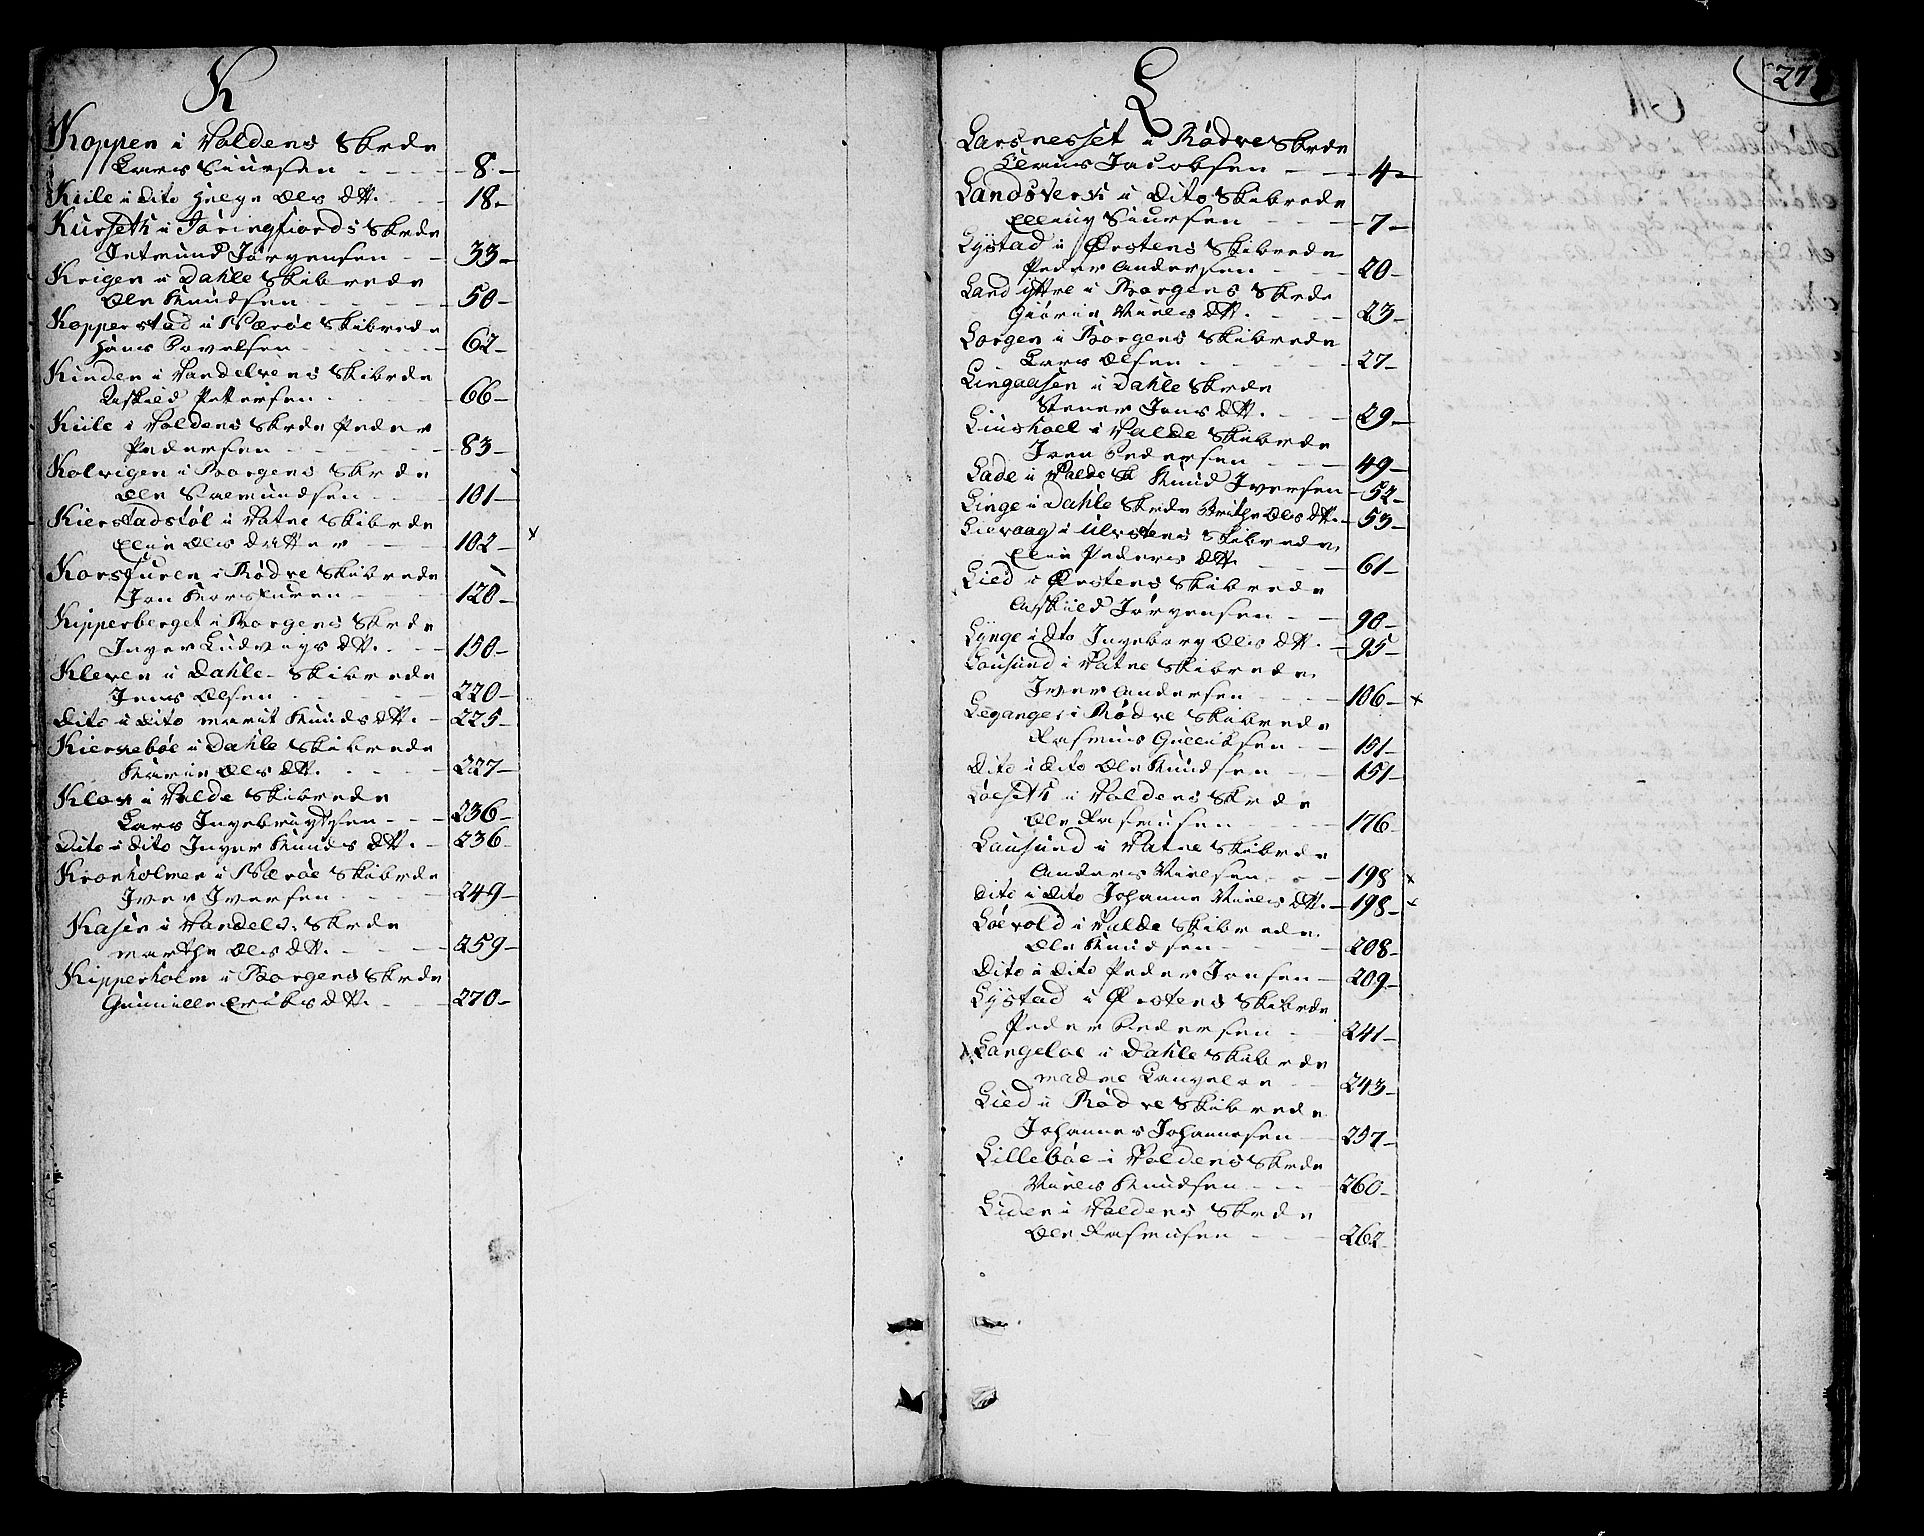 K
Koppen i Voldens Skrde
Lars Siursen - - - 8 -
Kiile i dito Helge Ols dtt. - - 18 -
Kurseth i Jøringfiords Skrde
Jetmund Jørgensen - - 33 -
Krigen i Dahle Skibrede
Ole Knudsen - - - 50 -
Kopperstad i Værøe Skibrede
Hans Povelsen - - - 62 -
Kinden i Vandelvens Skibrde
Askild Pettersen - - 66 -
Kiile i Voldens Skrde Peder
Pedersen - - - 83 -
Kolvigen i Borgens Skrde
Ole Salmundsen - - 101 -
Kierstadstøl i Vatne Skibrde
Elie Ols datter - - 102 - x
Korsfuren i Rødve Skibrede
Jon Korsfuren - - 120 -
Kipperberget i Borgens Skrde
Inger Ludvigs dtt. - - 150 -
Kleven i Dahle Skibrede
Jens Olsen - - - 220 -
Dito i dito Marit Knuds dtt. - 225 -
Kiersebøe i Dahle Skibrede
Marie Ols dtt. - - - 227 -
Klov i Volde Skibrede
Lars Ingebrigtsen - - 236 -
Dito i dito Inger Knuds dtt. - 236 -
Kronholmen i Værøe Skibrde
Iver Iversen - - - 249 -
Kasen i Vandelv. Skrde
Marthe Ols dtt. - - 259 -
Kipperholm i Borgens Skrde
Gunnille Eriks dtt. - - 270 -
L
Larsnesset i Rødve Skrde
Claus Jacobsen - - 4 -
Landsverk i dito Skibrede
Elling Siursen - - 7 -
Lystad i Ørstens Skibrede
Peder Andersen - - 20 -
Land ÿttre i Borgens Skrde
Giørin Niels dtt. - - 23 -
Lorgen i Borgens Skibrede
Lars Olsen - - - 27 -
Lingaasen i Dahle Skrde
Stener Jens dtt. - - 29 -
Liushoel i Valde Skibrde
Iver Pedersen - - 49 -
Lade i Valde Sk Knud Iversen - 52 -
Linge i Dahle Skrde Brithe Ols dtt. - 53 -
Lievaag i Ulvstens Skibrede,
Elie Peders dtt. - - 61 -
Lied i Ørstens Skibrede
Askild Jørgensen - - 90 -
Lÿnge i dto Ingeborg Ols dtt. - 95 -
Lausund i Vatne Skibrede,
Iver Andersen - - 106 - x
Leganger i Rødve Skibrede
Rasmus Gulliksen - - 151 -
Dito i dito Ole Knudsen - - 151 -
Løeseth i Voldens Skrde
Ole Rasmusen - - - 176 -
Lausund i Vatne Skibrde
Anders Nielsen - - 198 x
Dito i dito Johanne Niels dtt. - 198 - x
Løevold i Valde Skibrede.
Ole Knudsen - - - 208 -
Dito i dito Peder Jonsen - 209 -
Lÿstad i Ørstens Skibrede
Peder Pedersen - - 241 -
Langeloe i Dahle Skibrede
Madme Langeloe - - 243 -
Lied i Rødve Skibrede
Johannes Johannesen - - 257 -
Lillebøe i Voldens Skrde
Niels Knudsen - - - 260 -
Liden i Voldens Skrde
Ole Rasmusen - - - 262 -